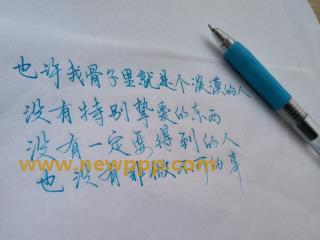 也许我骨子里就是个淡漠的人
没有特别挚爱的东西
没有一定要得到的人
www.newppp.com
也没有非做不可的事